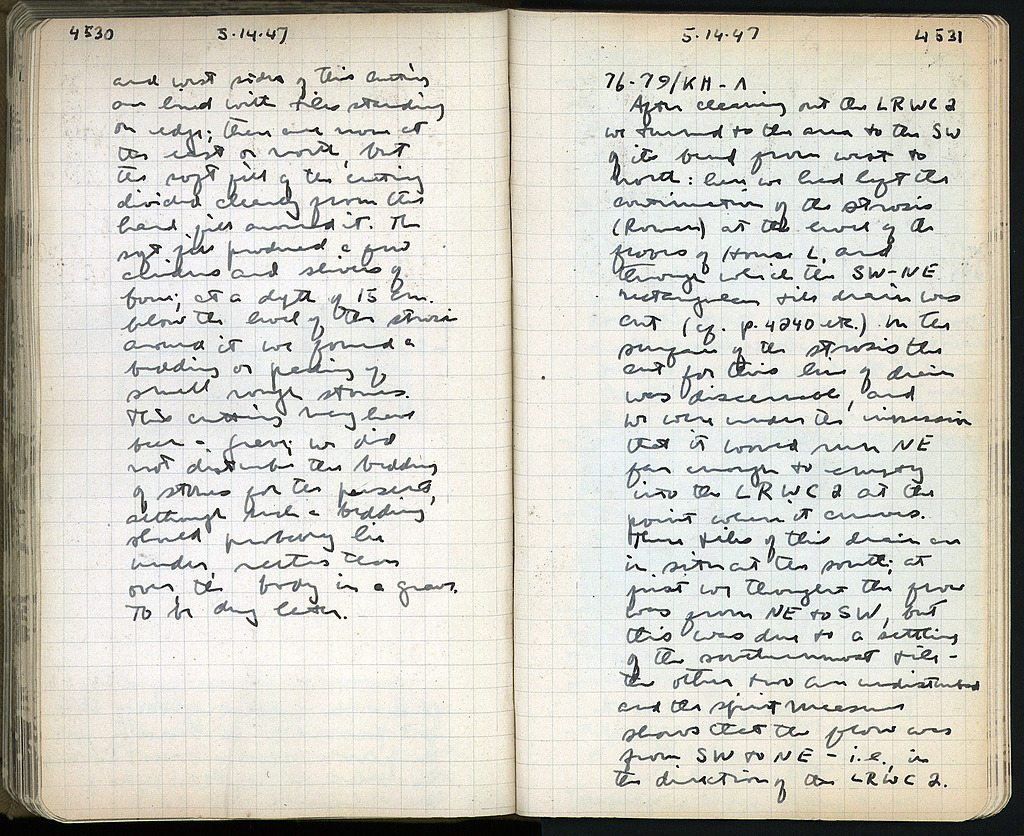 4530
5-14-47
and west sides of this cutting
are lined with tiles standing
on edge; there are none at
the east or north, but
the soft fill of the cutting
divided cleanly from the
hard fill around it. The
soft fill produced a few
cinders and slivers of
bone; at a depth of 15 cm.
below the level of the strosis
around it we found a
bedding or packing of
small rough stones.
This cutting may have
been a grave; we did
not disturb the bedding
of stones for the present,
although such a bedding
should probably lie
under, rather than
over, the body in a grave.
To be dug later.
5-14-47
4531
76-79/KH-Λ
After cleaning out the LRWC 2
we turned to the area to the SW
of its bend from west to
north: here we had left the
continuation of the strosis
(Roman) at the level of the
floors of House L, and
through which the SW-NE
rectangular tile drain was
cut (cf. p. 4240 etc.) In the
surface of the strosis the
cut for this line of drain
was discernable, and
we were under the impression
that it would run NE
far enough to empty
into the LRWC 2 at the
point where it curves.
Three tiles of this drain are
in situ at the south; at
first we thought the flow
was from NE to SW, but
this was due to a settling
of the southernmost tile -
the other two are undisturbed
and the spirit measure
shows that the flow was
from SW to NE - i.e., in
the direction of the LRWC 2.